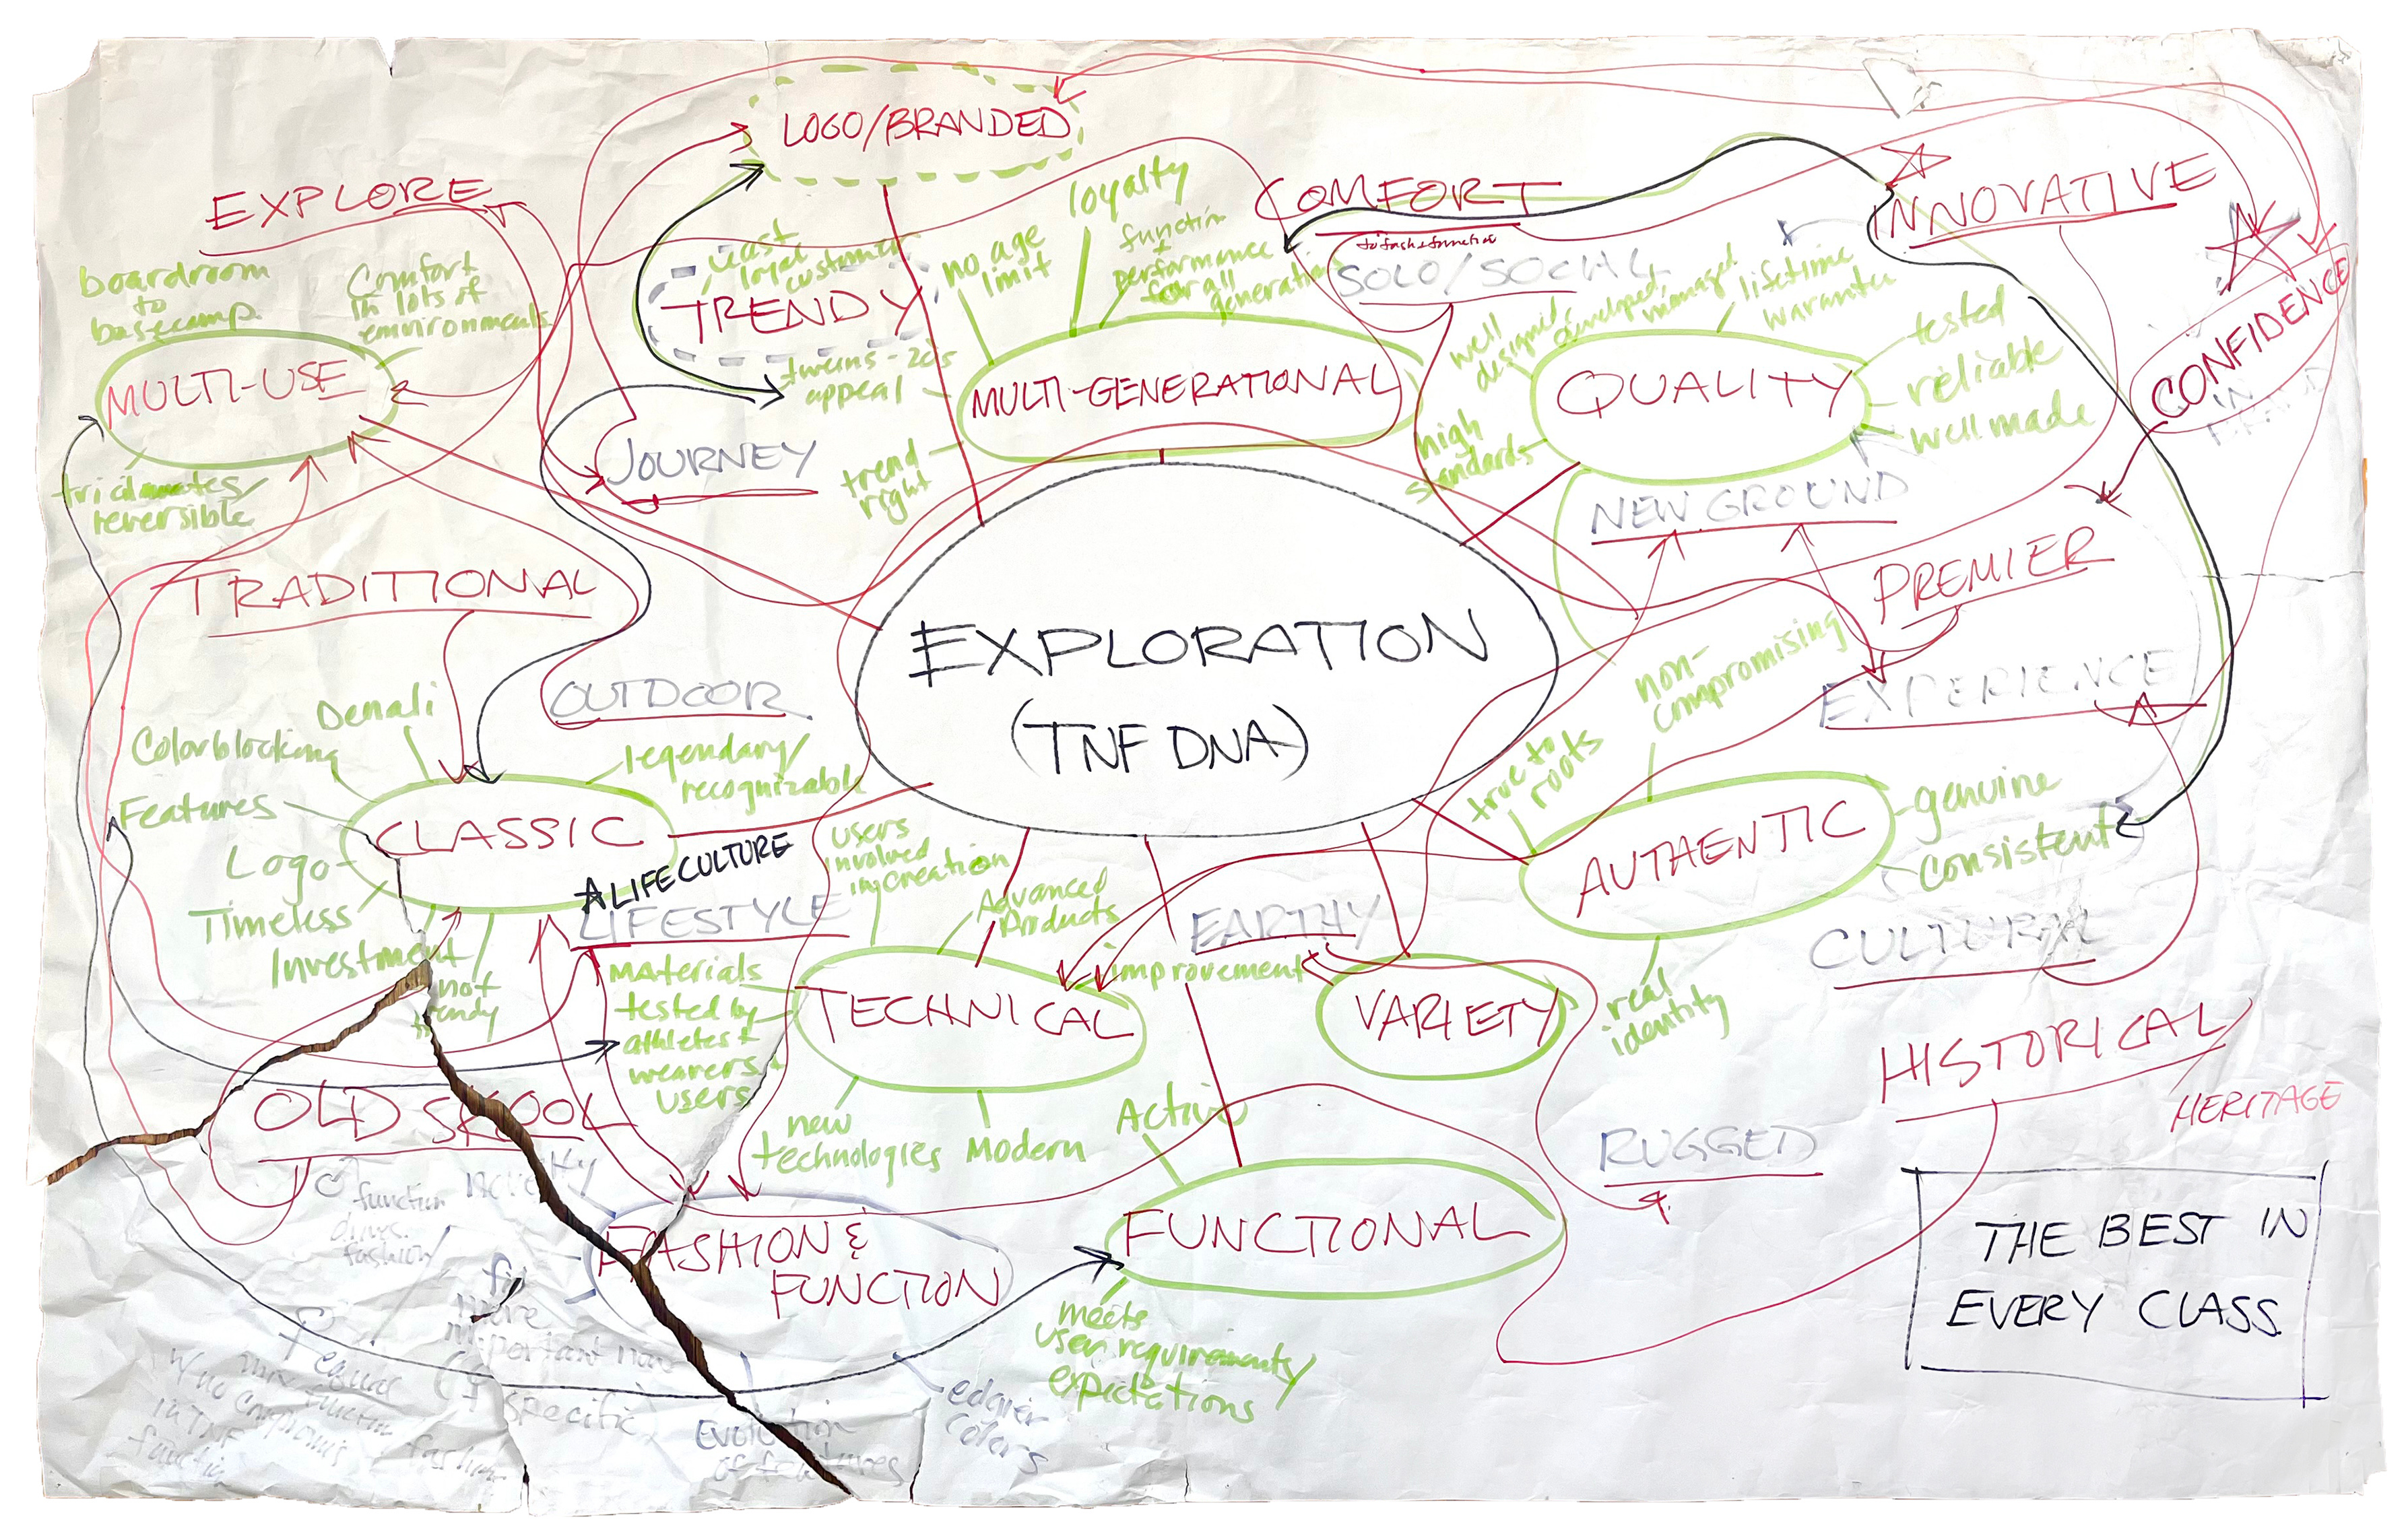 LOGO/BRANDED
EXPLORE
boardroom
to
basecamp
Comfort
in lots of
environments
MULTI-USE
reversible
least
loyal
customer
TRENDY
tweens-20's
appeal
no age
limit
loyalty
function
+
performance
for all
generations
MULTI-GENERATIONAL
trend
right
COMFORT
SOLO/SOCIAL
INNOVATIVE
well
designed,
developed,
managed
lifetime
waranty
tested
reliable
well made
QUALITY
high
standards
CONFIDENCE
IN
JOURNEY
NEW GROUND
PREMIER
TRADITIONAL
EXPLORATION
(TNF DNA)
non-
compromising
EXPERIENCE
OUTDOOR
Denali
Colorblocking
Features
Logo
Timeless
Investment
not
trendy
legendary/
recognizable
CLASSIC
A LIFE CULTURE
LIFESTYLE
users
involved
in creation
Advanced
Products
improvement
EARTHY
true to
roots
AUTHENTIC
genuine
Consistent
CULTURAL
real
identity
MAterials
tested by
athletes +
wearers +
users
TECHNICAL
VARIETY
new
technologies
Modern
HISTORICAL/
HERITAGE
OLD SKOOL
Active
RUGGED
function
drives
fashion
FASHION &
FUNCTION
FUNCTIONAL
THE BEST IN
EVERY CLASS
meets
user requirements/
expectations
more
important now
equal
w/ no compromise
in TNF
function
specific
fashion
Evolution
of features
edgier
colors